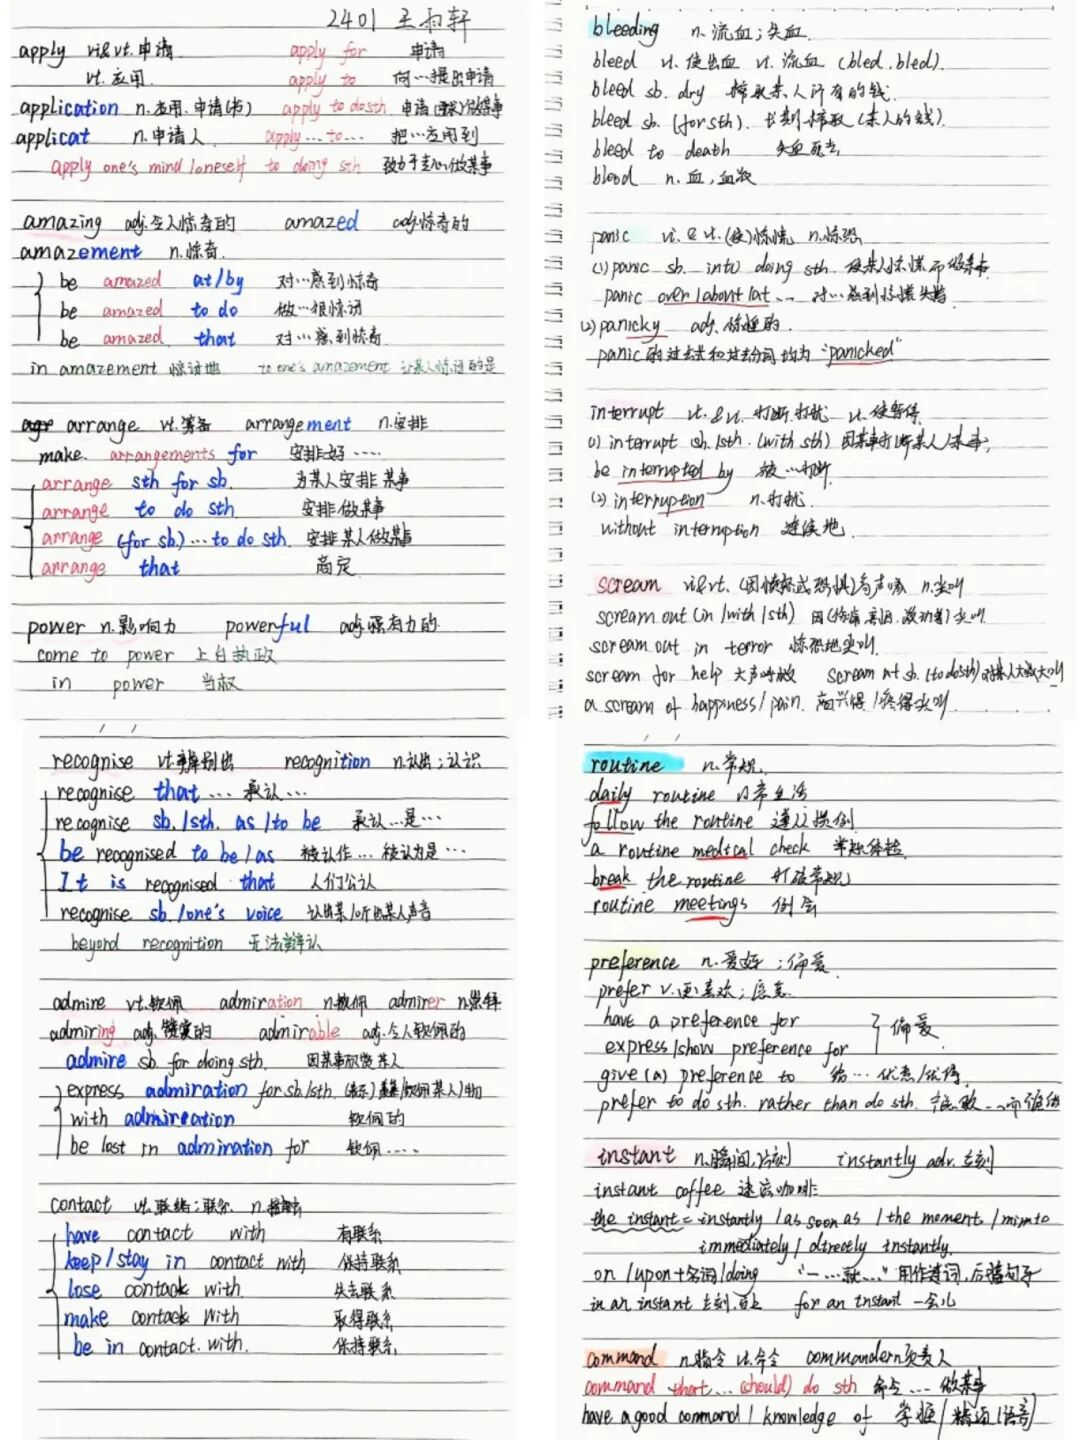 2401 王
apply vi&vt.申请 apply for 申请
vt.应用 apply to 向…提出申请
application n.应用.申请(书) apply to do sth 申请 做某事
applicat n.申请人 apply...to... 把…应用到
apply one's mind/oneself to doing sth 致力于 做某事
amazing adj.令人惊奇的 amazed adj.惊奇的
amazement n.惊奇.
be amazed at/by 对…感到惊奇
be amazed to do 做…很惊讶
be amazed that 对…感到惊奇
in amazement 惊讶地 to one's amazement 让某人惊讶的是
arrange vt.筹备 arrangement n.安排
make. arrangements for 安排好……
arrange sth for sb. 为某人安排某事
arrange to do sth 安排做某事
arrange (for sb.)...to do sth. 安排某人做某事
arrange that 商定
power n.影响力 powerful adj.强有力的
come to power 上台执政
in power 当权
recognise vt.辨别出 recognition n.认出;认识
recognise that... 承认…
recognise sb./sth. as/to be 承认…是…
be recognised to be/as 被认作… 被认为是…
It is recognised that 人们公认
recognise sb./one's voice 认出某/听出某人声音
beyond recognition 无法辨认
admire vt.钦佩 admiration n.钦佩 admirer n.崇拜
admiring adj.赞赏的 admirable adj.令人钦佩的
admire sb. for doing sth. 因某事欣赏某人
express admiration for sb./sth. 钦佩某人/物
with admireation 钦佩的
be lost in admiration for 钦佩……
contact vt.联络;联系 n.接触
have contact with 有联系
keep/stay in contact with 保持联系
lose contack with 失去联系
make contack with 取得联系
be in contact.with. 保持联系
bleeding n.流血;失血
bleed vt.使出血 vi.流血 (bled.bled).
bleed sb. dry 榨取某人所有的钱.
bleed sb. (for sth). 长期榨取(某人的钱).
bleed to death 失血死亡
blood n.血,血液
panic vi.&vt.(使)惊慌 n.惊恐
(1) panic sb. into doing sth. 使某人惊慌而做某事
panic over/about/at... 对…感到惊慌失措
(2) panicky adj.惊慌的.
panic的过去式和过去分词均为"panicked"
interrupt vt.&vi.打断.打扰 vt.使暂停
(1) interrupt sb./sth. (with sth) 因某事打断某人/某事;
be interrupted by 被…打断.
(2) interruption n.打扰.
without interruption 连续地.
scream vi&vt.(因愤怒或恐惧)高声喊 n.尖叫
scream out (in/with/sth) 因(伤痛. .激动等)尖叫
scream out in terror 惊恐地尖叫.
scream for help 大声呼救 scream at sb. (to do sth) 对某人大喊大叫
a scream of happiness/pain. 高兴得/疼得尖叫.
routine n.常规.
daily routine 日常生活
follow the routine 遵从惯例.
a routine medical check 常规体检.
break the routine 打破常规
routine meetings 例会
preference n.爱好;偏爱.
prefer v.更喜欢;
have a preference for
express/show preference for 偏爱
give (a) preference to 给…优惠/优待.
prefer to do sth. rather than do sth.
instant n.瞬间,片刻 instantly adv.立刻
instant coffee 速溶咖啡
the instant = instantly / as soon as / the moment /
immediately / directly instantly.
on/upon+名词/doing "一…就…" 用作连词,后接句子
in an instant 立刻. for an instant 一会儿
command n.指令 vt.命令 commander n.负责人
command that...(should) do sth 命令…做某事
have a good command / knowledge of 掌握/精通(语言)